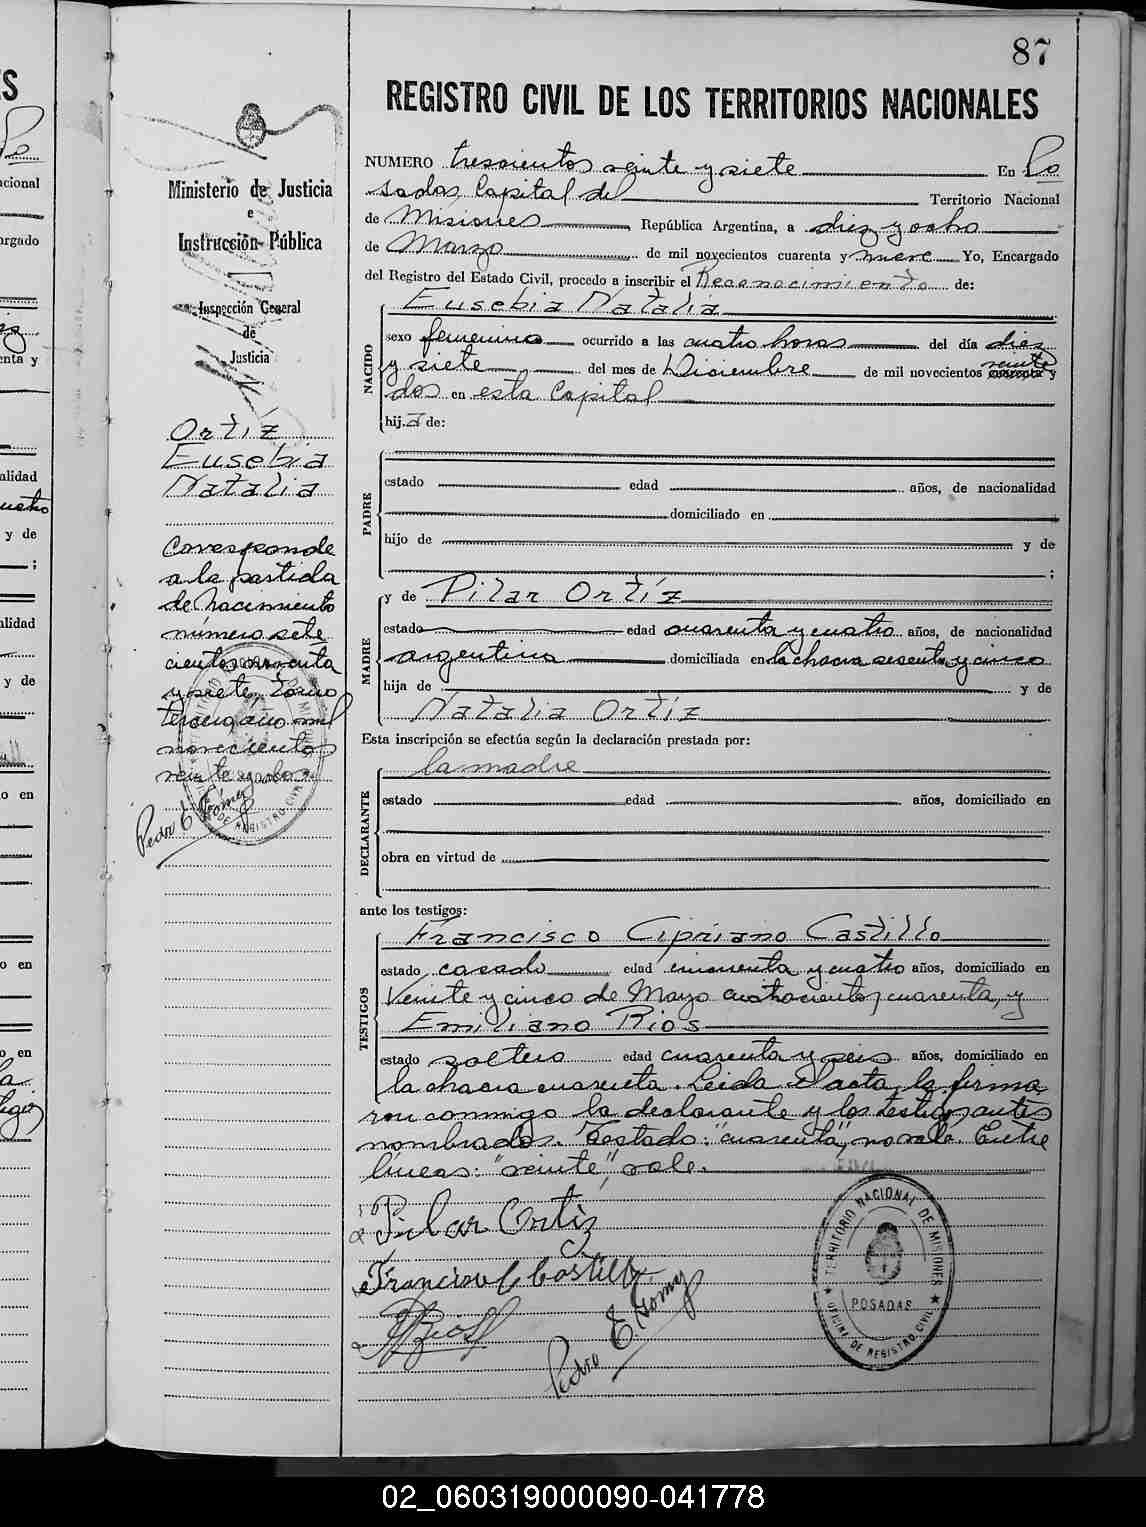 87
REGISTRO CIVIL DE LOS TERRITORIOS NACIONALES
NUMERO trescientos veinte y siete En Po
sadas Capital del Territorio Nacional
de Misiones República Argentina, a diez y ocho
de Marzo de mil novecientos cuarenta y nueve Yo, Encargado
del Registro del Estado Civil, procedo a inscribir el Reconocimiento de:
NACIDO
Eusebia Natalia
sexo femenino ocurrido a las cuatro horas del día diez
veinte
y siete del mes de Diciembre de mil novecientos cuarenta y
dos en esta Capital
hija de:
PADRE
estado edad años, de nacionalidad
domiciliado en
hijo de y de
;
MADRE
y de Pilar Ortíz
estado edad cuarenta y cuatro años, de nacionalidad
argentina domiciliada en la chacra sesenta y cinco
hija de y de
Natalia Ortíz
Esta inscripción se efectúa según la declaración prestada por:
DECLARANTE
la madre
estado edad años, domiciliado en
obra en virtud de
ante los testigos:
TESTIGOS
Francisco Cipriano Castillo
estado casado edad cincuenta y cuatro años, domiciliado en
Veinte y cinco de Mayo cuatrocientos cuarenta, y
Emiliano Rios
estado soltero edad cuarenta y seis años, domiciliado en
la chacra cuarenta. Leida el acta, la firma
ron conmigo la declarante y los testigos antes
nombrados. Testado: "cuarenta", no vale. Entre
líneas: "veinte", vale.
Pilar Ortiz
Francisco C Castillo
Pedro E. Gomez
TERRITORIO NACIONAL DE MISIONES
POSADAS
OFICINA DE REGISTRO CIVIL
Ministerio de Justicia
e
Instrucción Pública
Inspección General
de
Justicia
Ortíz
Eusebia
Natalia
Corresponde
a la partida
de nacimiento
número sete
cientos
y siete, tomo
tercero, año mil
novecientos
veinte y ocho
Pedro E Gómez
02_060319000090-041778